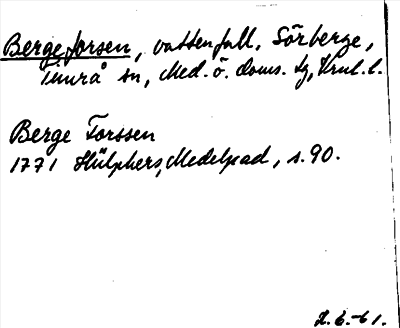 Bergeforsen, vattenfall, Sörberge,
Timrå sn, Med. ö. doms. tg, Vrml. l.
Berge Forssen
1771 Hülphers, Medelpad, s. 90.
6.-61.